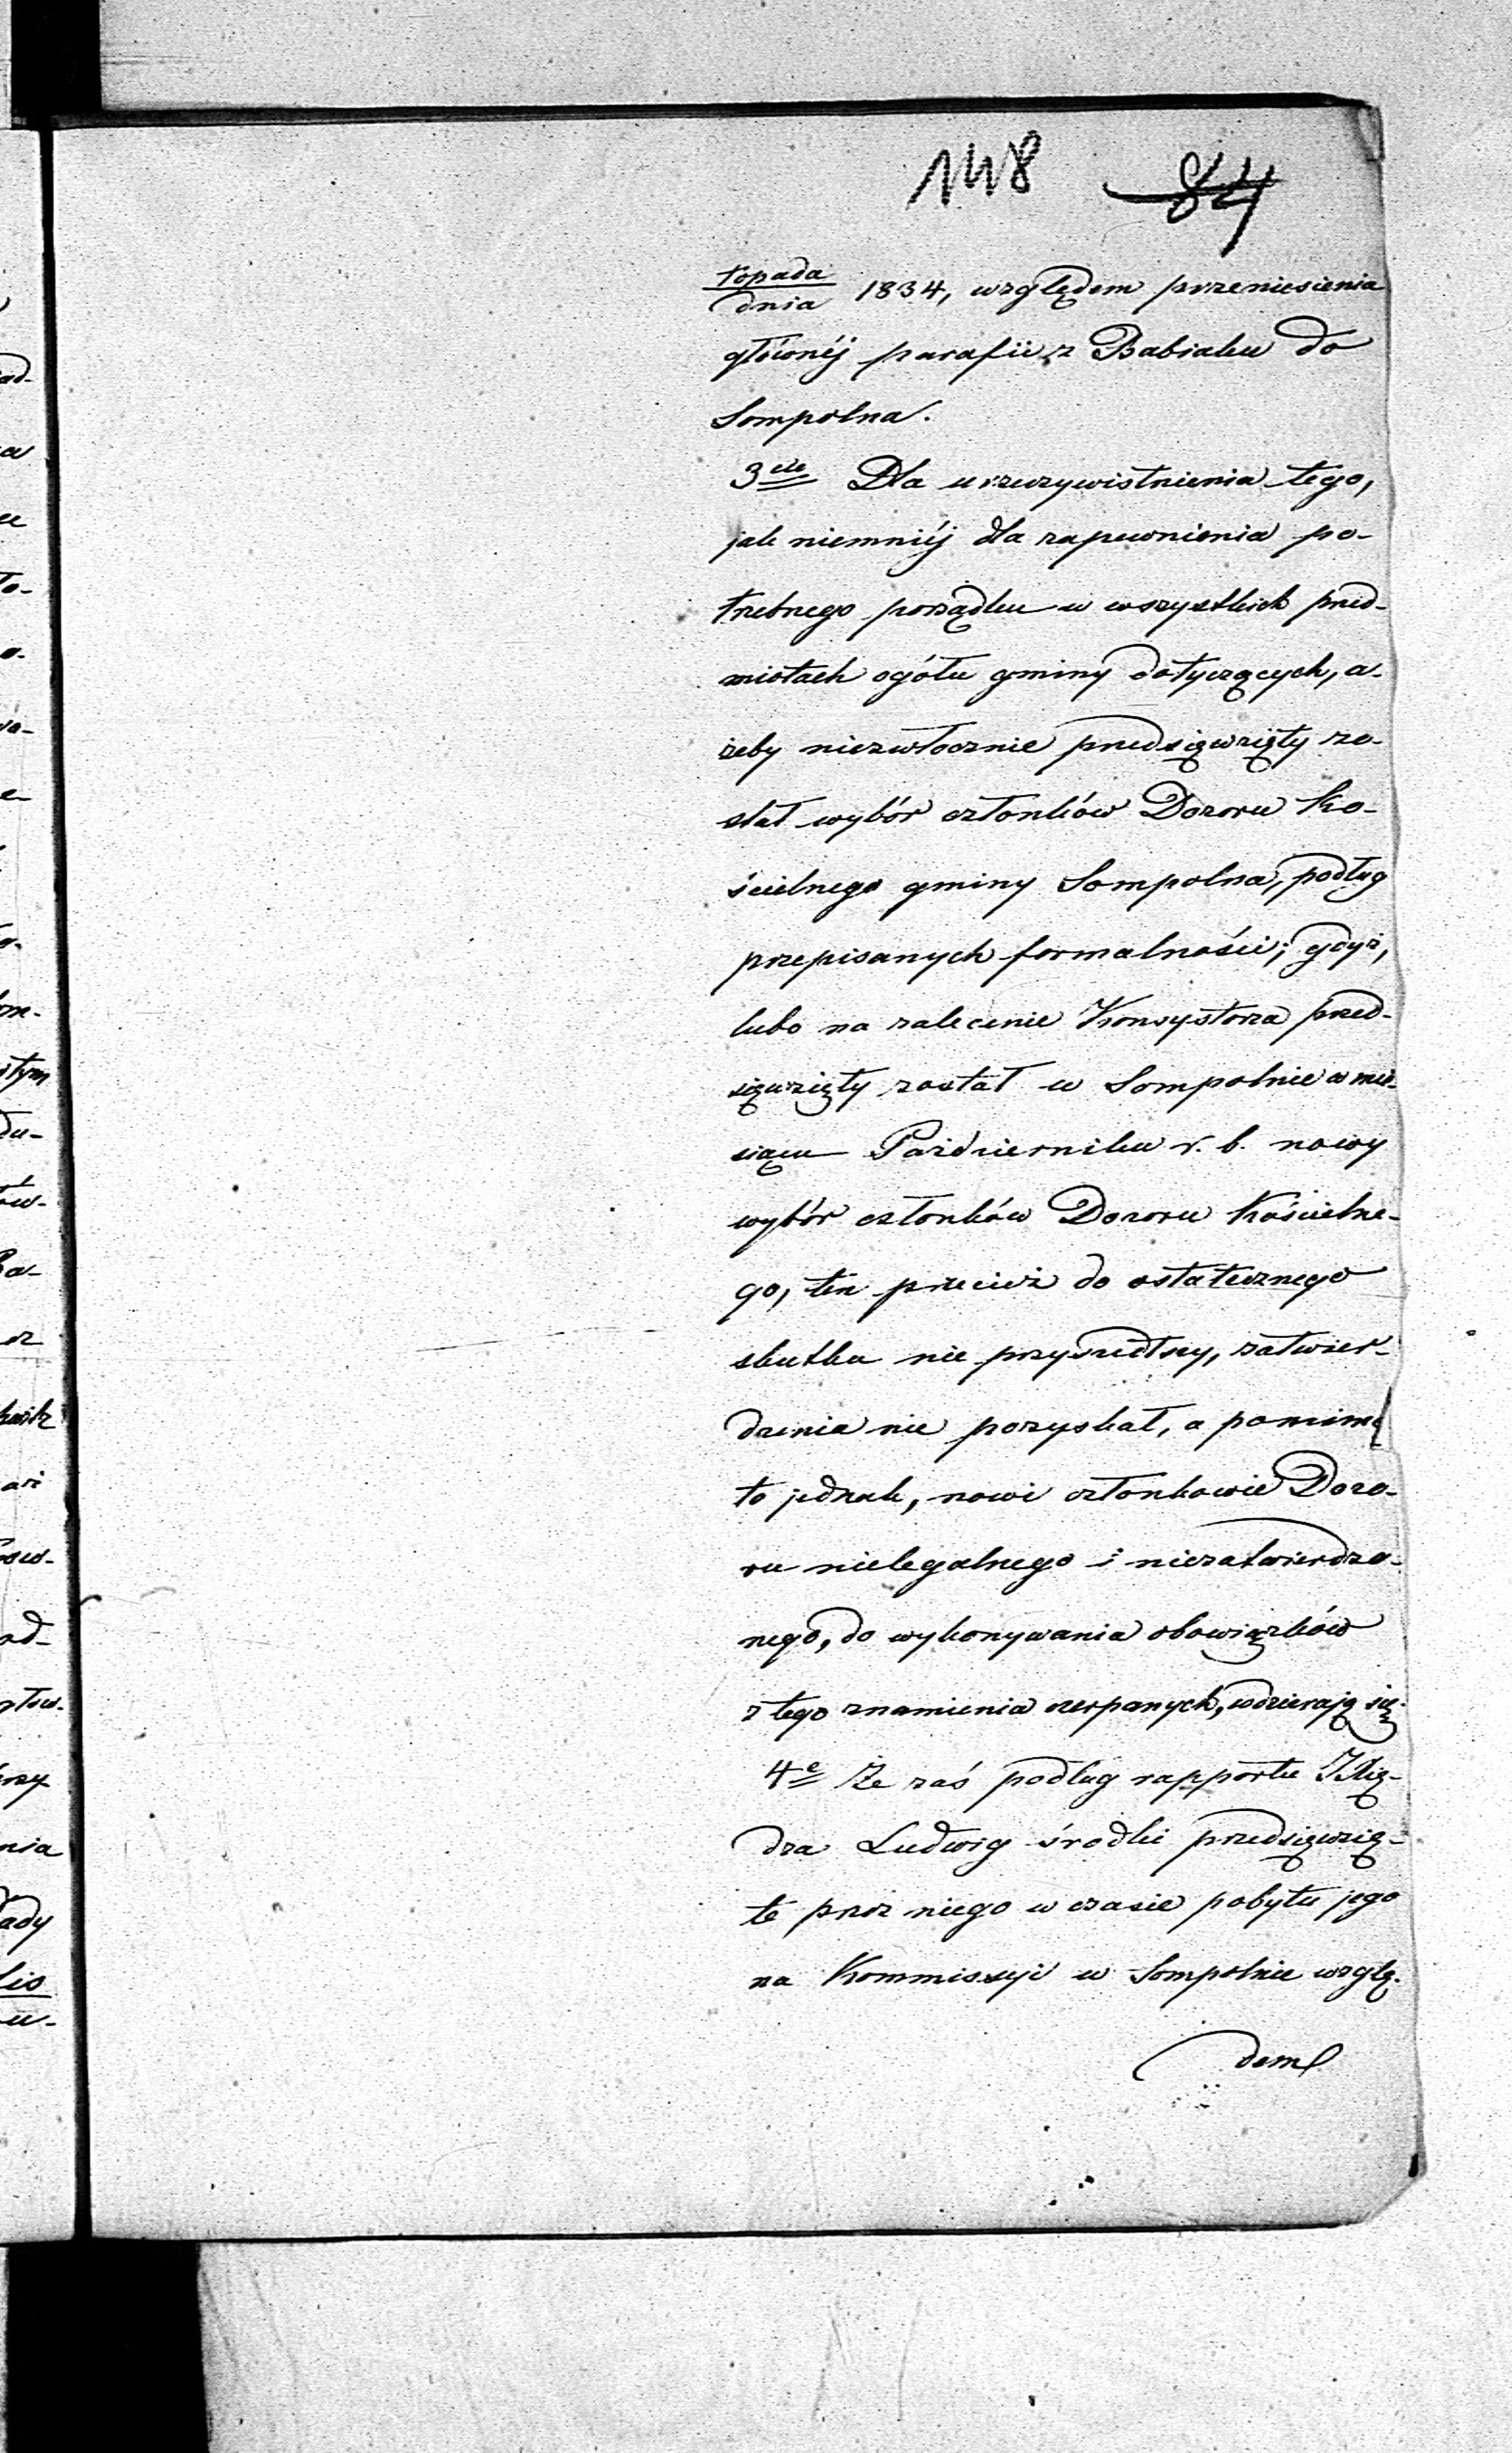 148 84
topada
dnia 1834, względem przeniesienia
głównéj parafii z Babiaku do
Sompolna.
3cie Dla urzeczywistnienia tego,
jak niemniéj dla zapewnienia po-
trzebnego porządku w wszystkich przed-
miotach ogółu gminy dotyczących, a-
żeby niezwłocznie przedsięwzięty zo-
stał wybór członków Dozoru Ko-
ścielnego gminy Sompolna, podług
przepisanych formalności; gdyż,
lubo na zalecenie Konsystorza przed-
sięwzięty został w Sompolnie w mie-
siącu Październiku r. b. nowy
wybór członków Dozoru Kościelne-
go, ten przecież do ostatecznego
skutku nie przyszedłszy, zatwier-
dzenia nie pozyskał, a pomimo
to jednak, nowi członkowie Dozo-
ru nielegalnego i niezatwierdzo-
nego, do wykonywania obowiązków
z tego znamienia czerpanych, wdzierają się.
4e Że zaś podług rapportu Xię-
dza Ludwig środki przedsięwzię-
te przez niego w czasie pobytu jego
na Kommissyi w Sompolnie wzglę-
dem